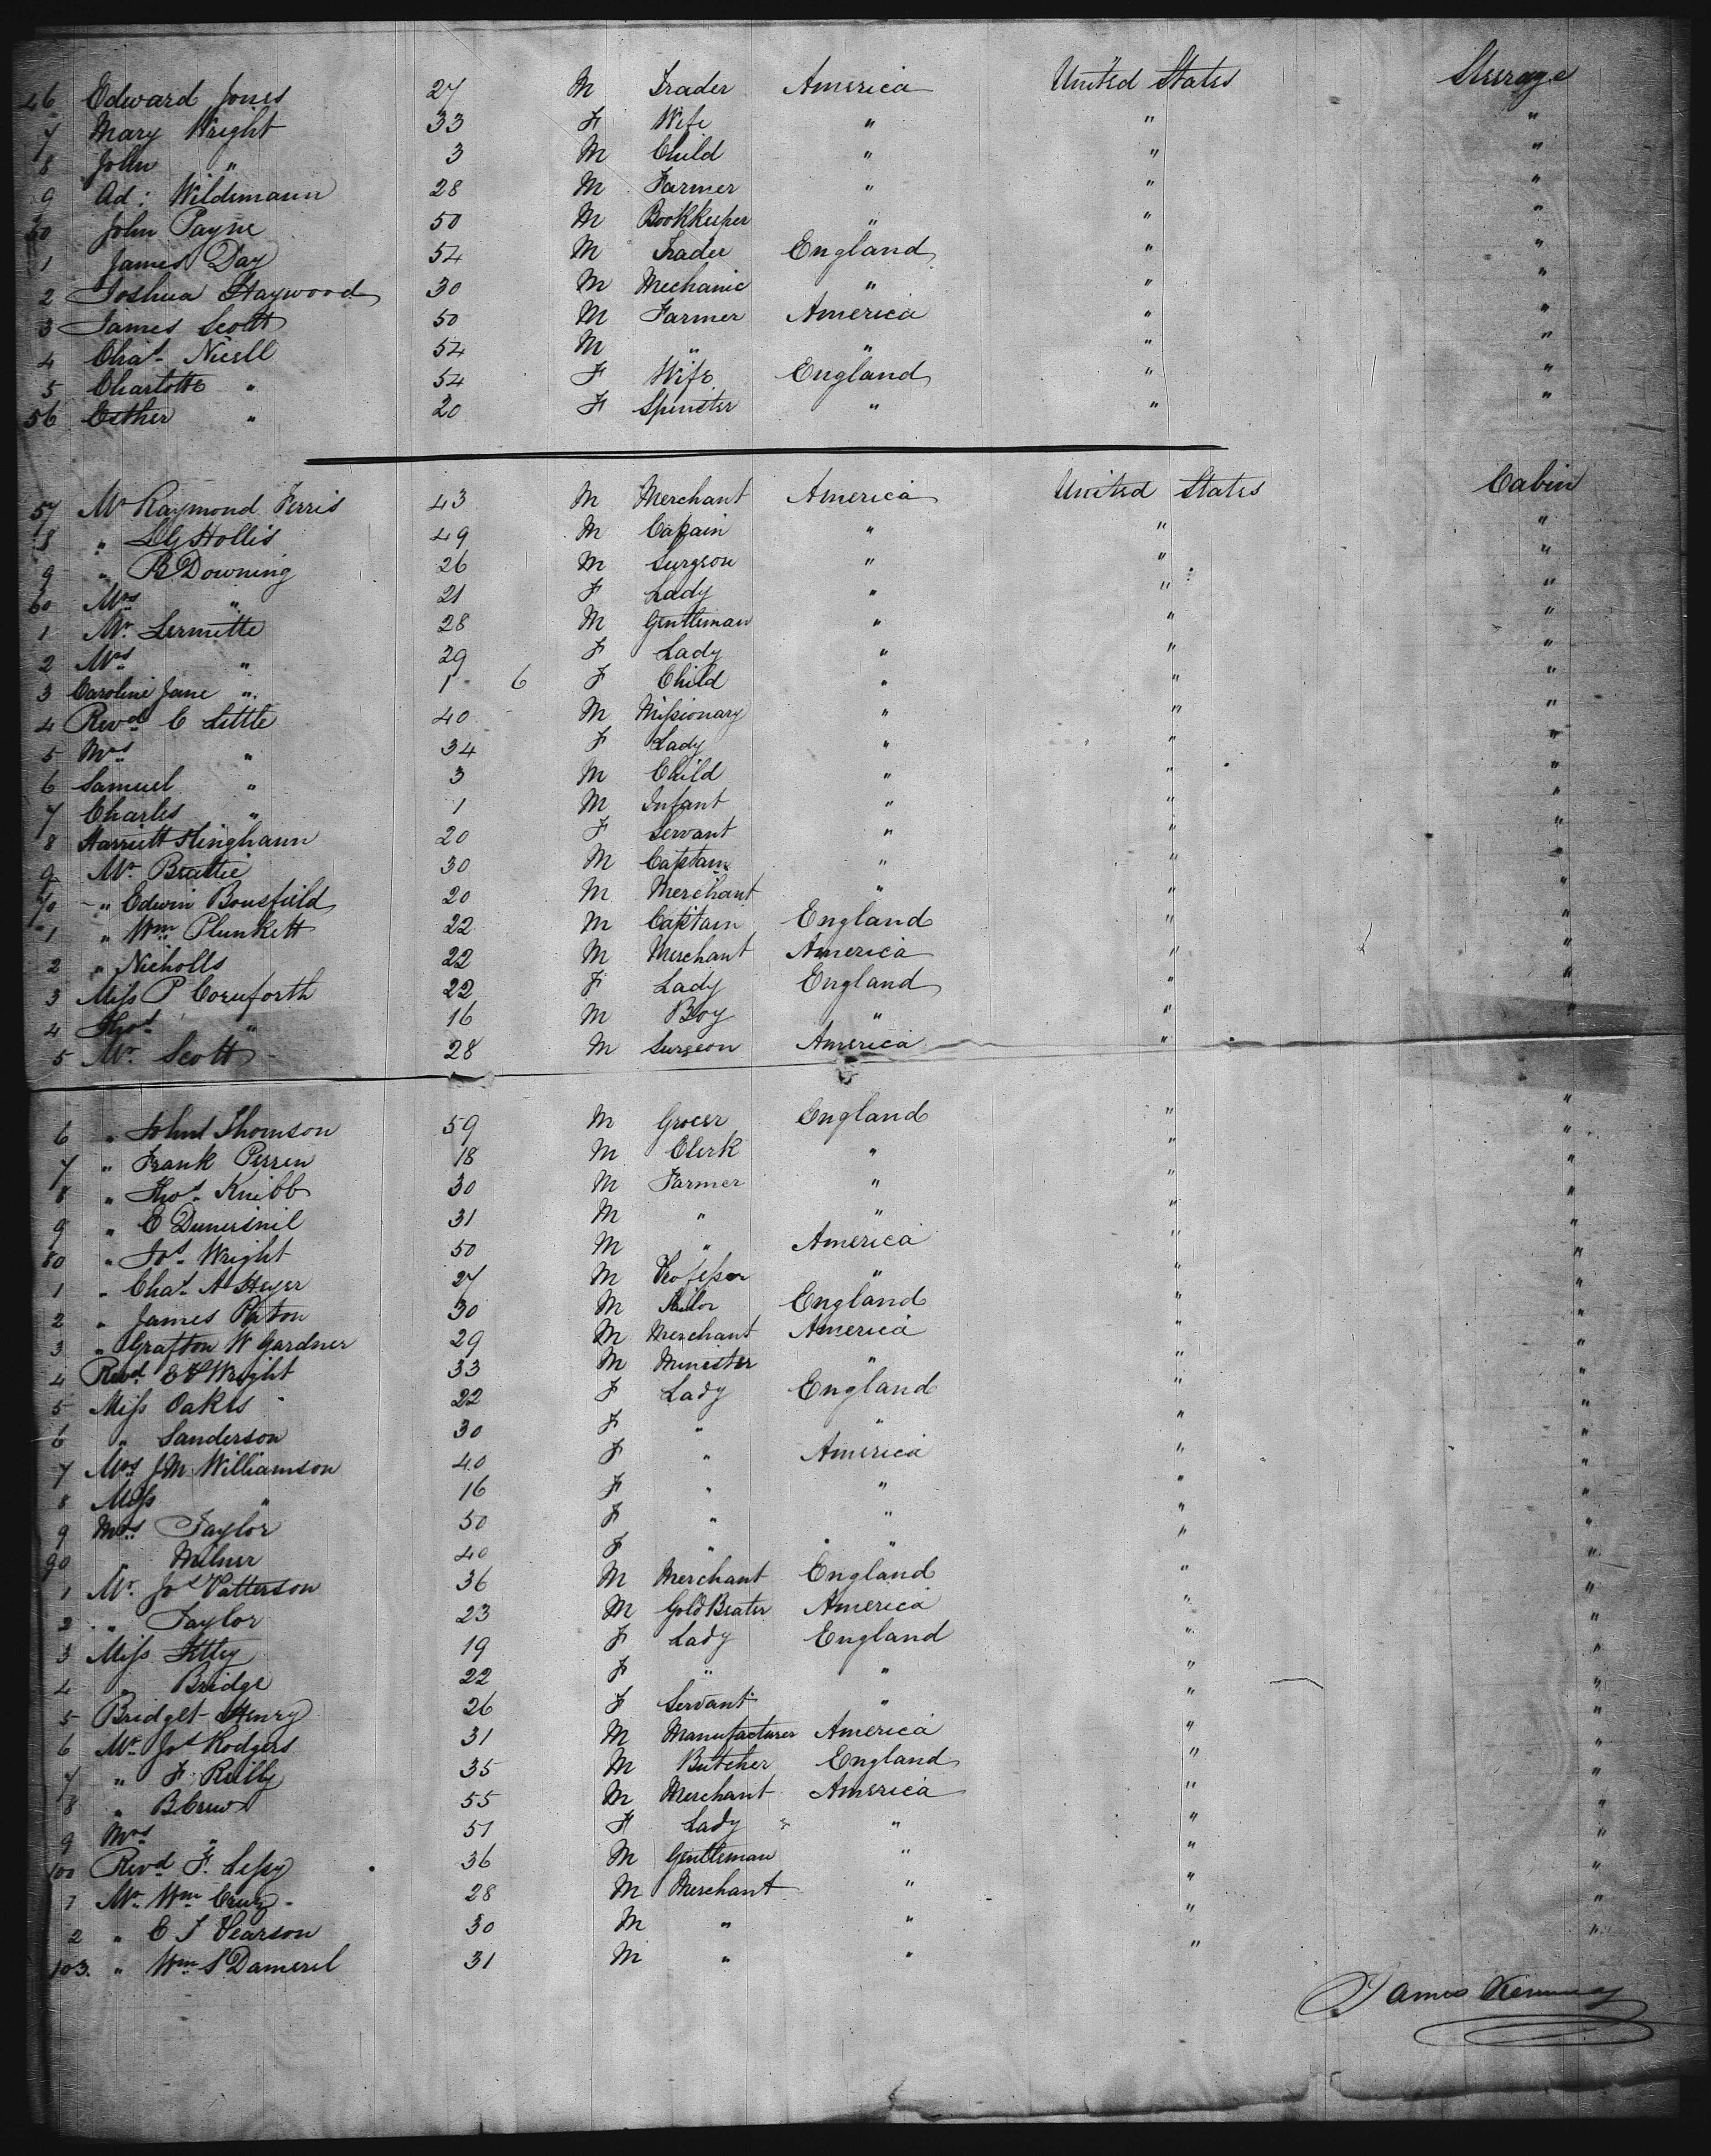 46 Edward Jones 27 M Trader America United States Steerage
7 Mary Wright 33 F Wife " " "
8 John " 3 M Child " " "
9 Ad: Wildemann 28 M Farmer " " "
50 John Payne 50 M Bookkeeper " " "
1 James Day 54 M Trader England " "
2 Joshua Haywood 30 M Mechanic " " "
3 James Scott 50 M Farmer America " "
4 Chas. Nicell 54 M " " " "
5 Charlotte " 54 F Wife England " "
56 Esther " 20 F Spinster " " "
57 Mr Raymond Ferris 43 M Merchant America United States Cabin
8 " LG Hollis 49 M Capain " " "
9 " B Downing 26 M Surgeon " " "
60 Mrs " 21 F Lady " " "
1 Mr. Lermitte 28 M Gentleman " " "
2 Mrs " 29 F Lady " " "
3 Caroline Jane " 1 6 F Child " " "
4 Revd C Little 40 M Missionary " " "
5 Mrs " 34 F Lady " " "
6 Samuel " 3 M Child " " "
7 Charles " 1 M Infant " " "
8 Harriett Hinghann 20 F Servant " " "
9 Mr. Beattie 30 M Captain " " "
70 " Edwin Bousfield 20 M Merchant " " "
1 " Wm Plunkett 22 M Captain England " "
2 " Nicholls 22 M Merchant America " "
3 Miss P Cornforth 22 F Lady England " "
4 Thos " 16 M Boy " " "
5 Mr. Scott 28 M Surgeon America "
6 " John Thomson 59 M Grocer England " "
7 " Frank Perren 18 M Clerk " " "
8 " Thos. Knibb 30 M Farmer " " "
9 " E 31 M " " " "
80 " Jos. Wright 50 M " America " "
1 " Chas. A Heyer 27 M Professor " " "
2 " James Paton 30 M England " "
3 " Grafton W Gardner 29 M Merchant America " "
4 Revd. Wright 33 M Minister " " "
5 Miss Oakes 22 F Lady England " "
6 " Sanderson 30 F " " " "
7 Mrs J M Williamson 40 F " America " "
8 Miss " 16 F " " " "
9 Mrs Taylor 50 F " " " "
90 " Milner 40 F " " " "
1 Mr. Jos Patterson 36 M Merchant England " "
2 " Taylor 23 M Gold Beater America " "
3 Miss 19 F Lady England " "
4 " Bridge 22 F " " " "
5 Bridget Henry 26 F Servant " " "
6 Mr Jos Rodgers 31 M Manufacturer America " "
7 " F. Reilly 35 M Butcher England " "
8 " B Crew 55 M Merchant America " "
9 Mrs " 51 F Lady " " "
100 Revd F. Lessy 36 M Gentleman " " "
1 Mr. Wm 28 M Merchant " " "
2 " E J Pearson 30 M " " " "
103. " Wm S Damerel 31 M " " "
James Kennedy